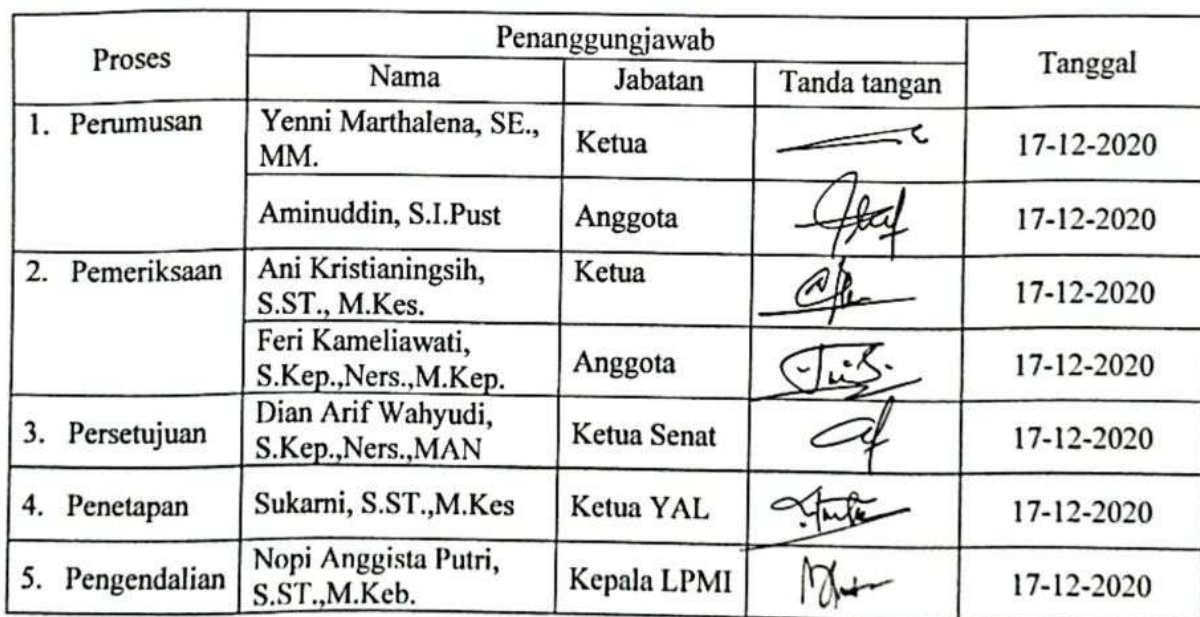 Proses
Penanggungjawab
Tanggal
Nama
Jabatan
Tanda tangan
1. Perumusan
Yenni Marthalena, SE.,
MM.
Ketua
17-12-2020
Aminuddin, S.I.Pust
Anggota
17-12-2020
2. Pemeriksaan
Ani Kristianingsih,
S.ST., M.Kes.
Ketua
17-12-2020
Feri Kameliawati,
S.Kep.,Ners.,M.Kep.
Anggota
17-12-2020
3. Persetujuan
Dian Arif Wahyudi,
S.Kep.,Ners.,MAN
Ketua Senat
17-12-2020
4. Penetapan
Sukarni, S.ST.,M.Kes
Ketua YAL
17-12-2020
5. Pengendalian
Nopi Anggista Putri,
S.ST.,M.Keb.
Kepala LPMI
17-12-2020